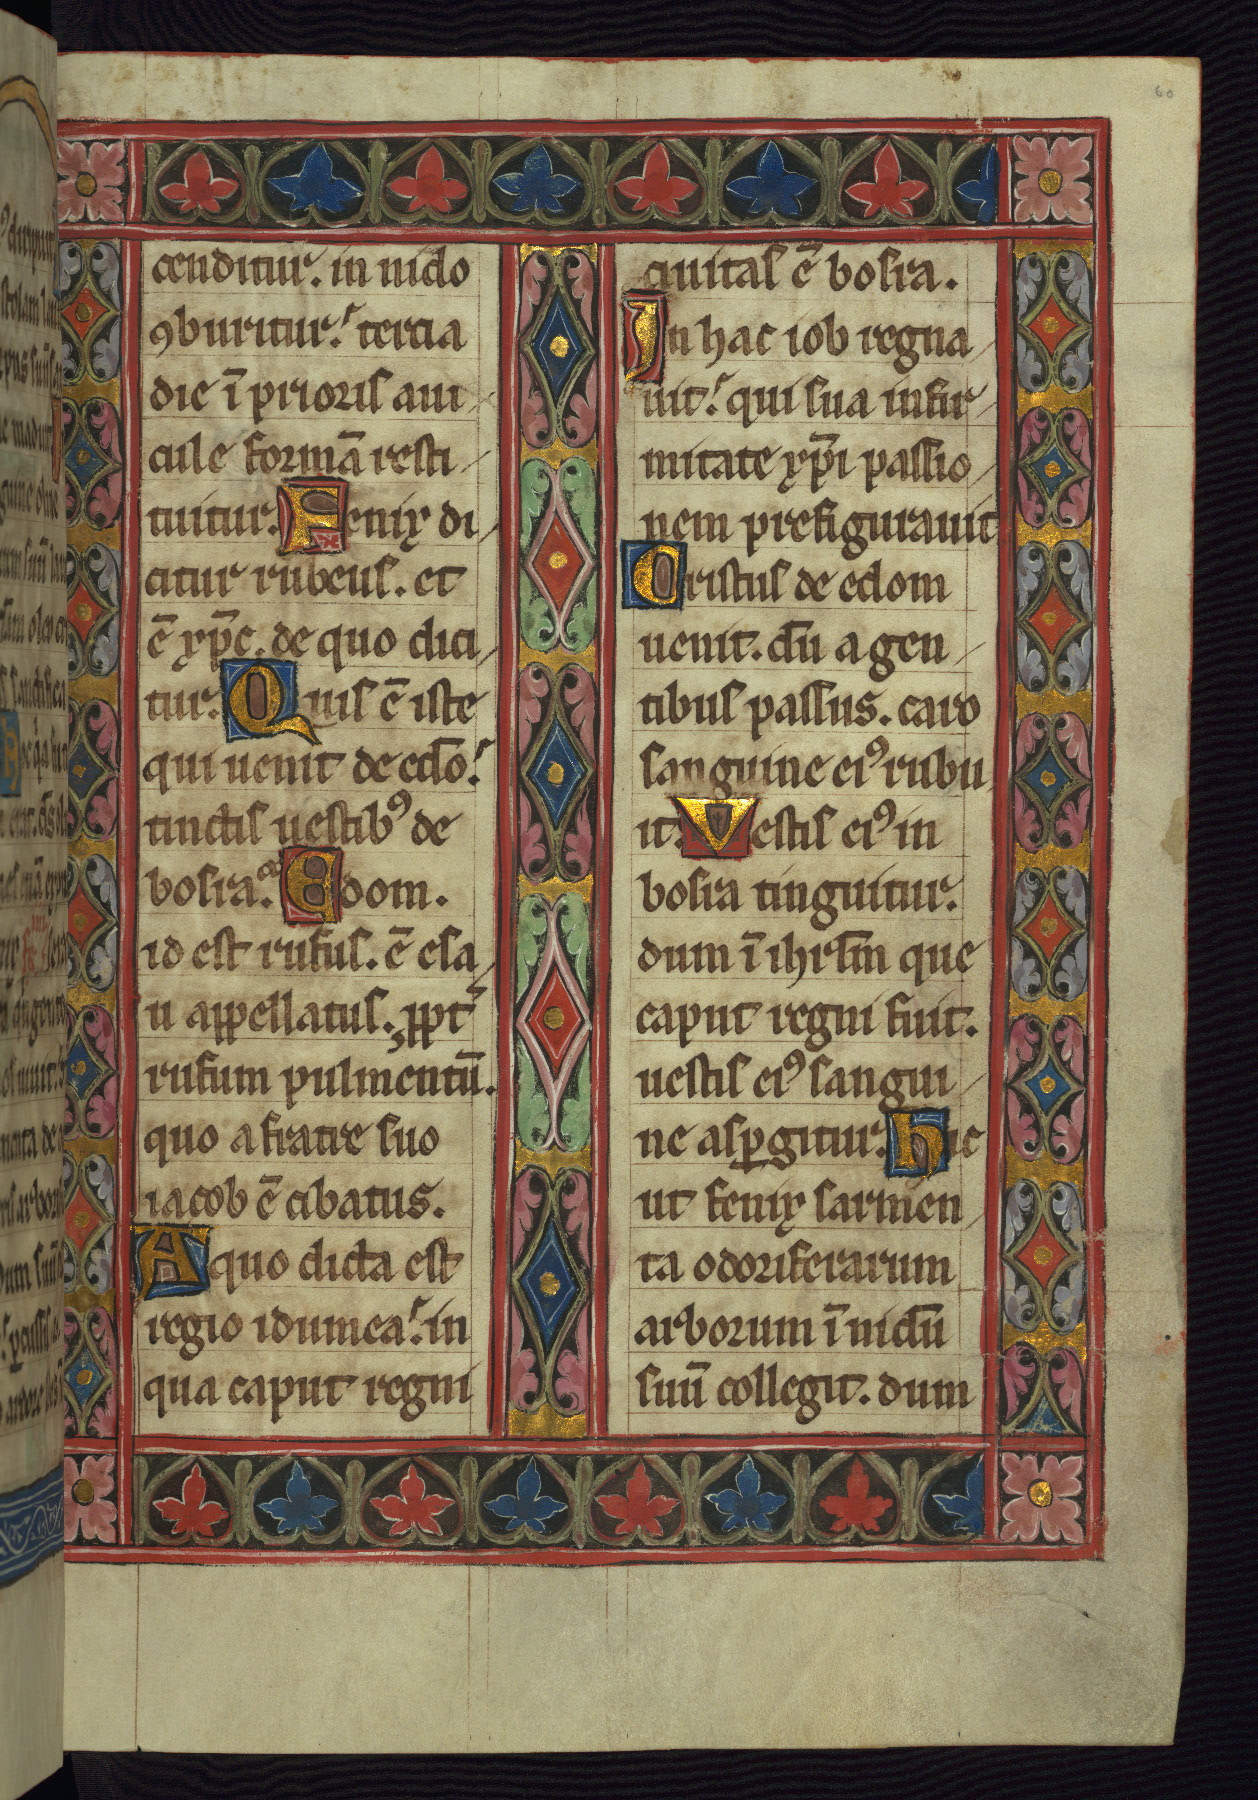 60
cenditur. in nido
ꝯburitur. tercia
die ī prioris aui
cule formā resti
tuitur. Fenix di
citur rubeus. et
ē xp̄c. de quo dici
tur. Quis ē iste
qui uenit de edō.
tinctis uestibꝰ de
bosra. Edom.
id est rufus. ē esa
u appellatus. ꝓpt̄
rufum pulmentū.
quo a fratre suo
iacob ē cibatus.
A quo dicta est
regio idumea. in
qua caput regni
ciuitas ē bosra.
In hac iob regna
uit. qui sua infir
mitate xp̄i passio
nem prefigurauit
Cristus de edom
uenit. dū a gen
tibus passus. caro
sanguine eiꝰ rubu
it. Vestis eiꝰ in
bosra tinguitur.
dum ī ihrl̄m que
caput regni fuit.
uestis eiꝰ sangui
ne asꝑgitur. Hic
ut fenix sarmen
ta odoriferarum
arborum ī nidū
suū collegit. dum